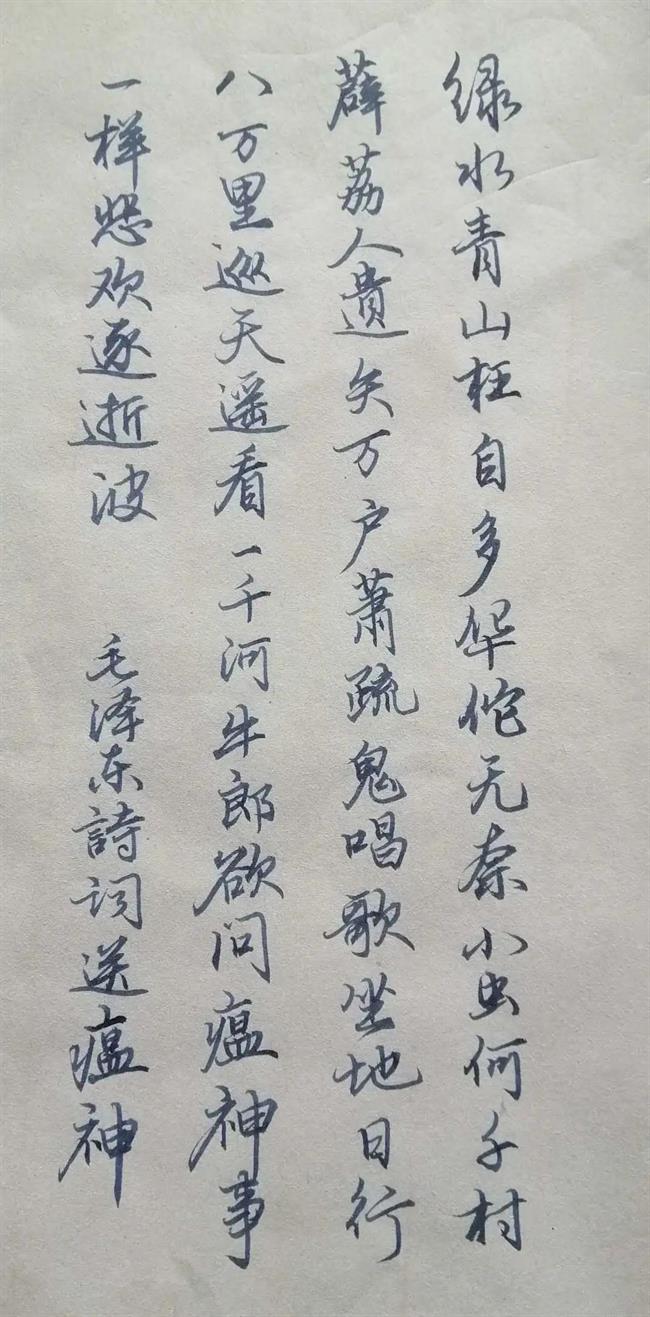 绿水青山枉自多华佗无奈小虫何千村
薜荔人遗矢万户萧疏鬼唱歌坐地日行
八万里巡天遥看一千河牛郎欲问瘟神事
一样悲欢逐逝波 毛泽东詩词送瘟神